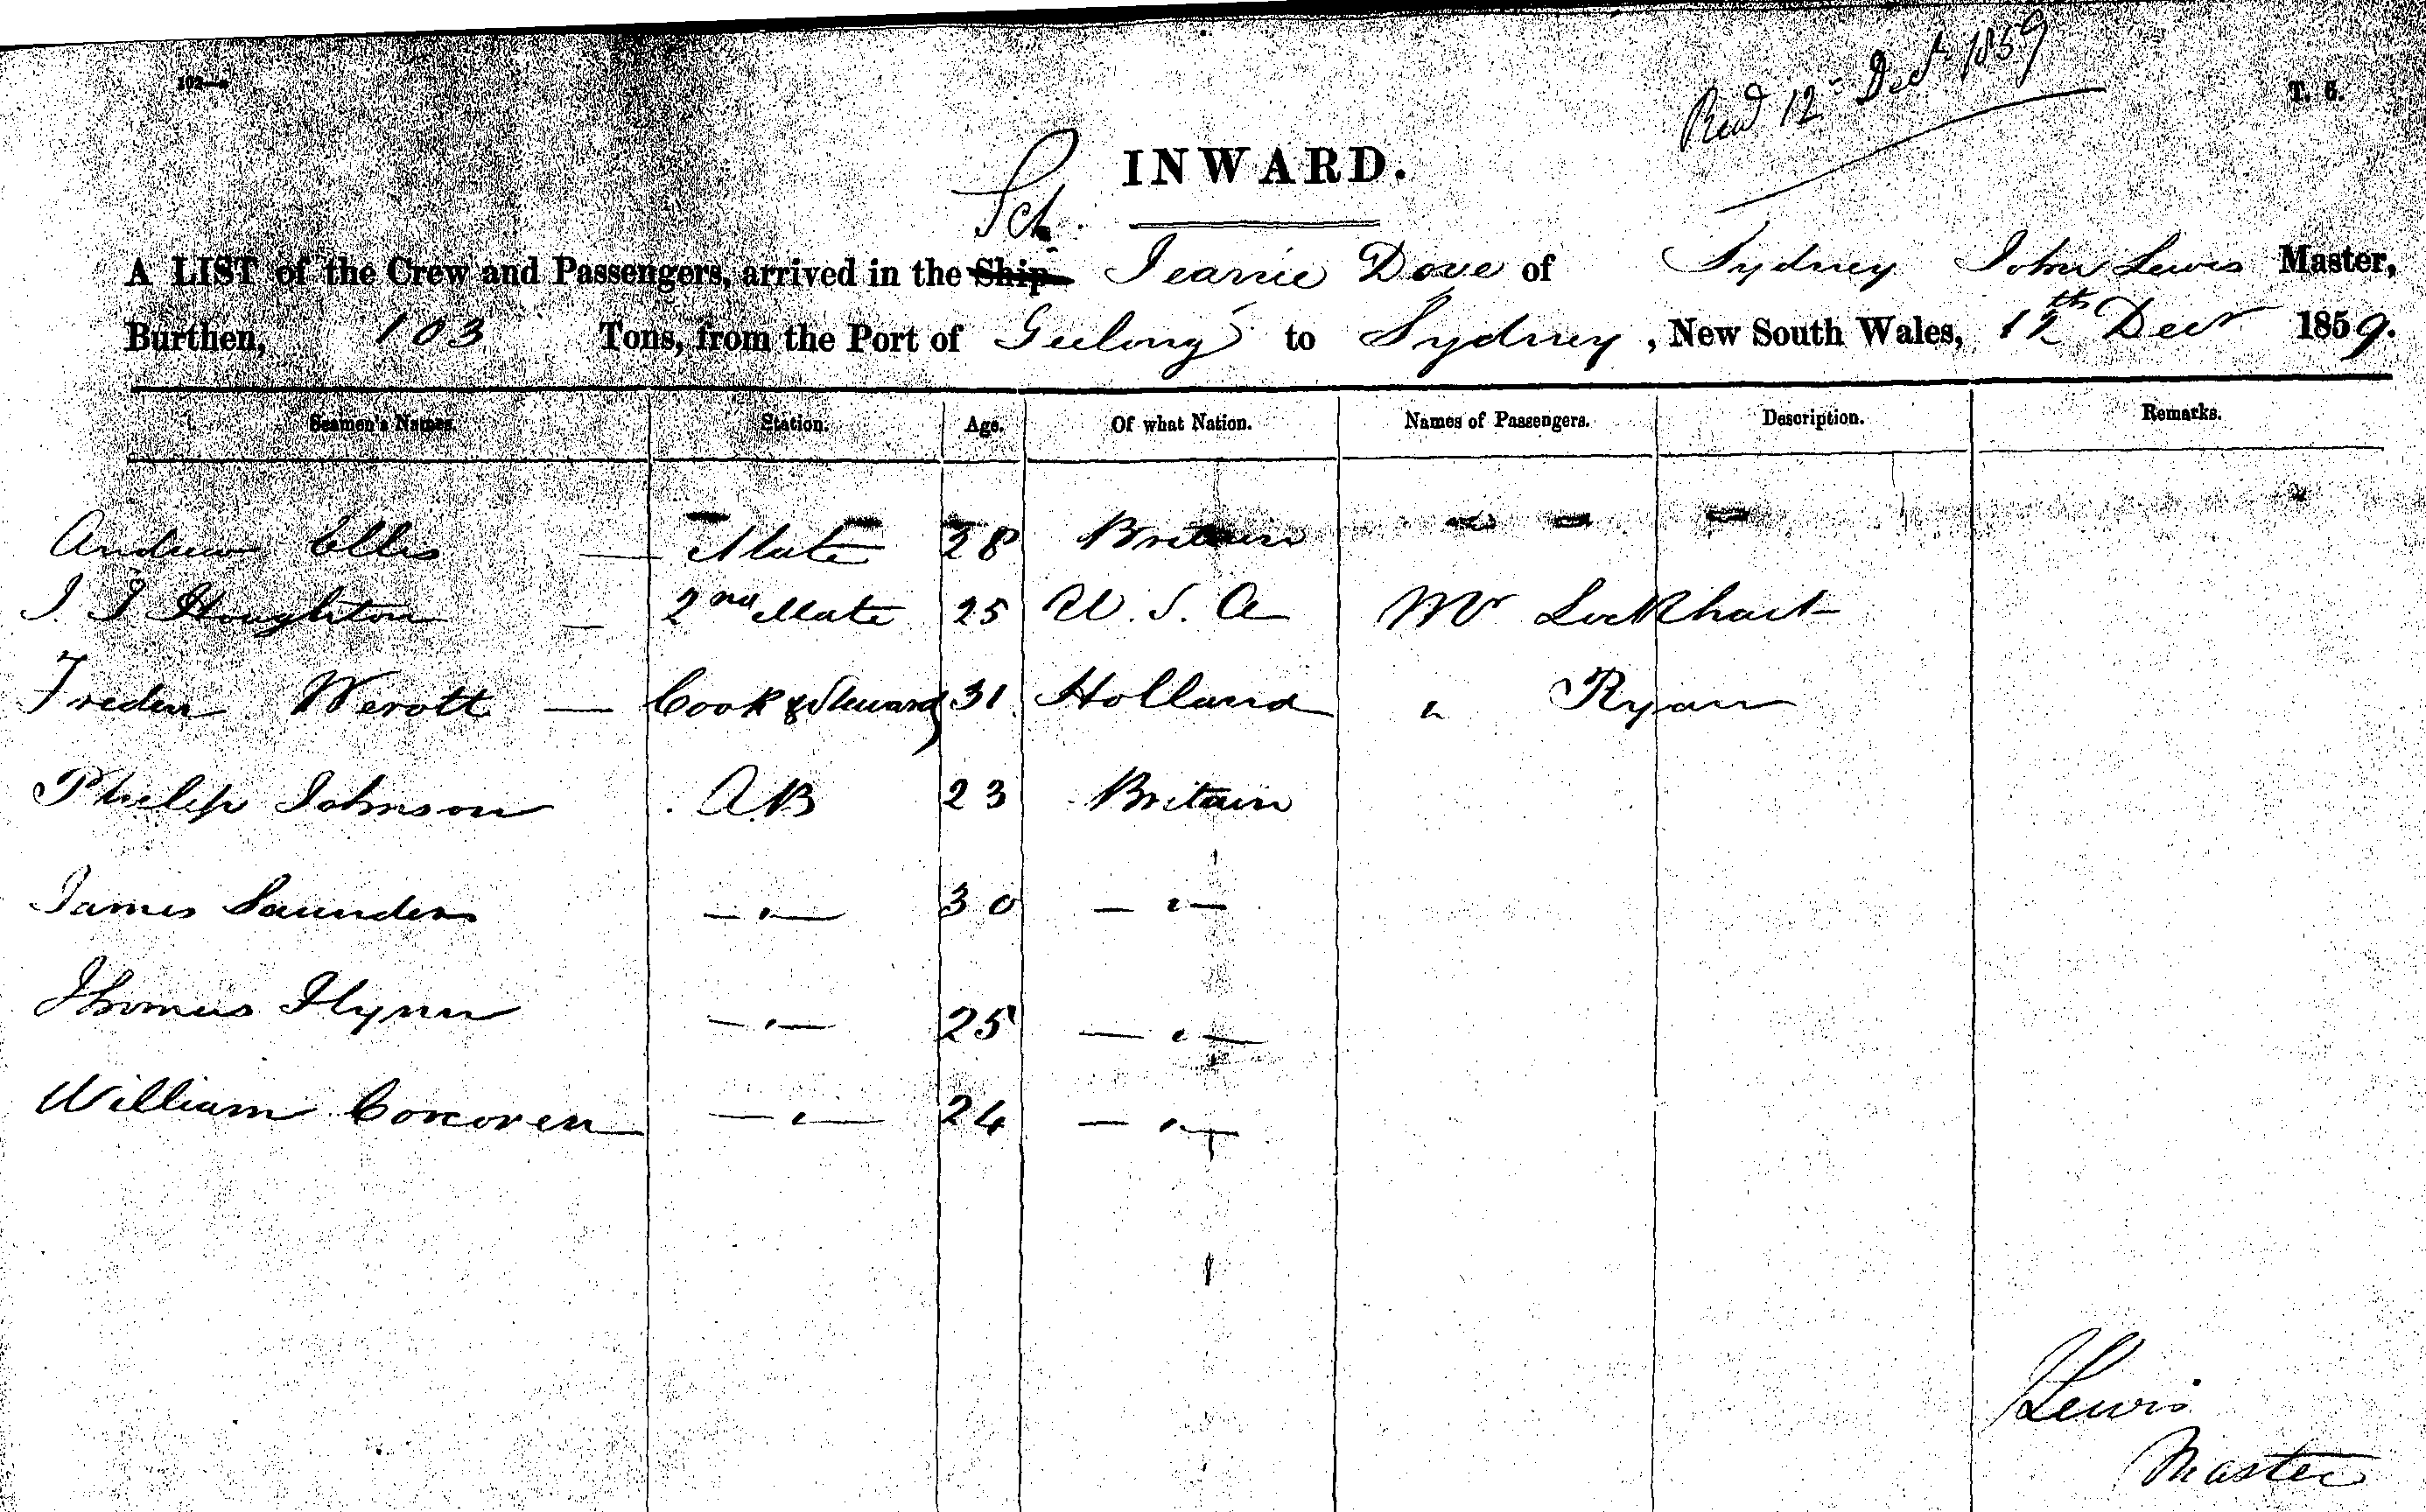 Recd 12th Decr 1859
T. 5.
INWARD.
Sch.
A LIST of the Crew and Passengers, arrived in the Ship Jeanie Dove of Sydney John Lewis Master,
Burthen, 103 Tons, from the Port of Geelong to Sydney, New South Wales, 12th Decr 1859.
Seamen's Names. Station. Age. Of what Nation. Names of Passengers. Description. Remarks.
Andrew Ellis — Mate 38 Britain
J. J. Houghton — 2nd Mate 25 U. S. A Mr Lockhart
Werott — Cook & Steward 31 Holland " Ryan
Philip Johnson A.B 23 Britain
James Saunders — " — 30 — " —
Thomas Flynn — " — 25 — " —
William Corcoren — " — 24 — " —
J Lewis
Master